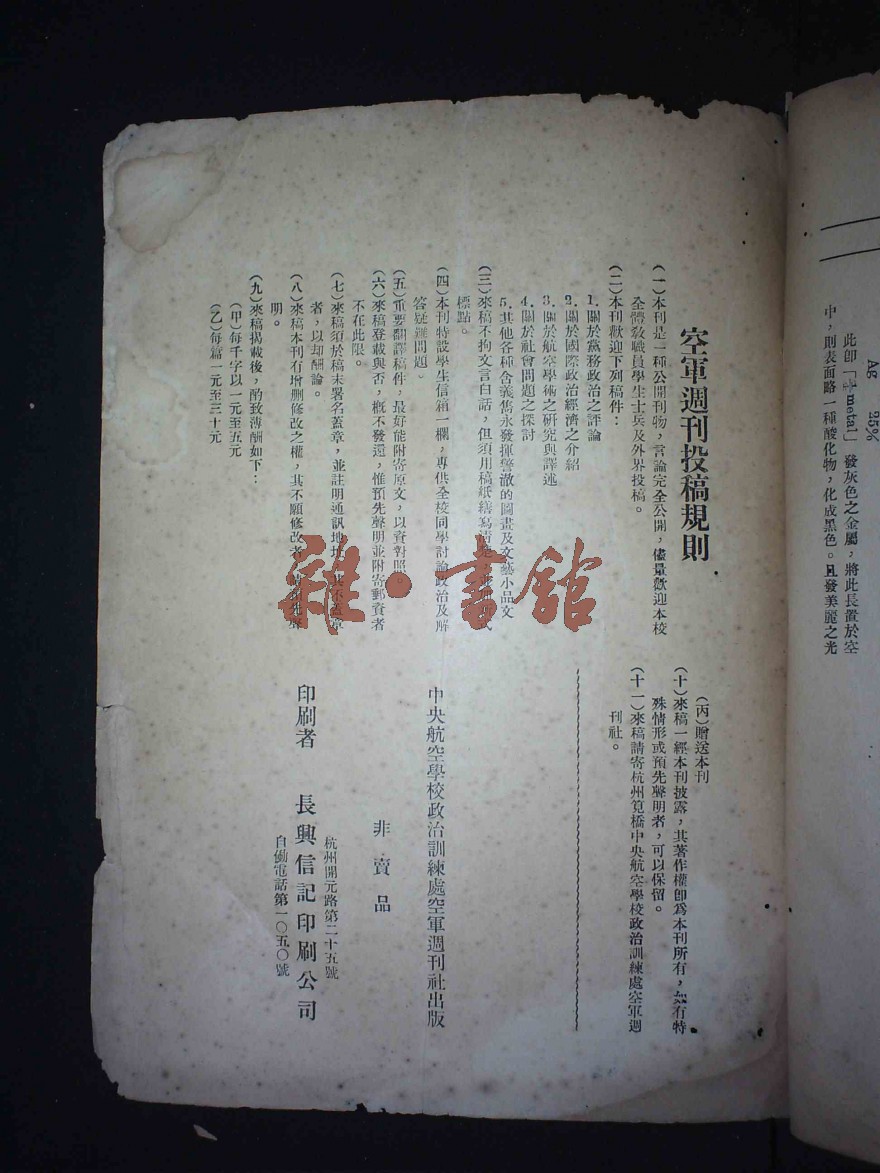 空軍週刊投稿規則
(一)本刊是一種公開刊物，言論完全公開，儘量歡迎本校
全體敎職員學生士兵及外界投稿。
(二)本刊歡迎下列稿件：
1.關於黨務政治之評論
2.關於國際政治經濟之介紹
3.關於航空學術之研究與譯述
4.關於社會問題之探討
5.其他各種含義雋永發揮警澈的圖畫及文藝小品文
(三)來稿不拘文言白話，但須用稿紙繕寫清
標點。
(四)本刊特設學生信箱一欄，專供全校同學討論政治及解
答疑難問題)
(五)重要翻譯稿件，最好能附寄原文，以資對照。
(六)來稿登載與否，槪不發還，惟預先聲明並附寄郵資者
不在此限。
(七)來稿須於稿末署名蓋章，並註明通訊地址，其不蓋章
者，以却酬論。
(八)來稿本刊有增删修改之權，其不願修改者，請預先聲
明。
(九)來稿揭載後，酌致薄酬如下：
(甲)每千字以一元至五元
(乙)每篇一元至三十元
(丙)贈送本刊
(十)來稿一經本刊披露，其著作權卽爲本刊所有，如有特
殊情形或預先聲明者，可以保留。
(十一)來稿請寄杭州筧橋中央航空學校政治訓練處空軍週
刊社。
中央航空學校政治訓練處空軍週刊社出版
非賣品
杭州開元路第二十五號
印刷者 長興信記印刷公司
自働電話第一〇五〇號
雜·書館
Ag 25%
此卽「¼metal」發灰色之金屬，將此長置於空
中，則表面略一種酸化物，化成黑色。且發美麗之光